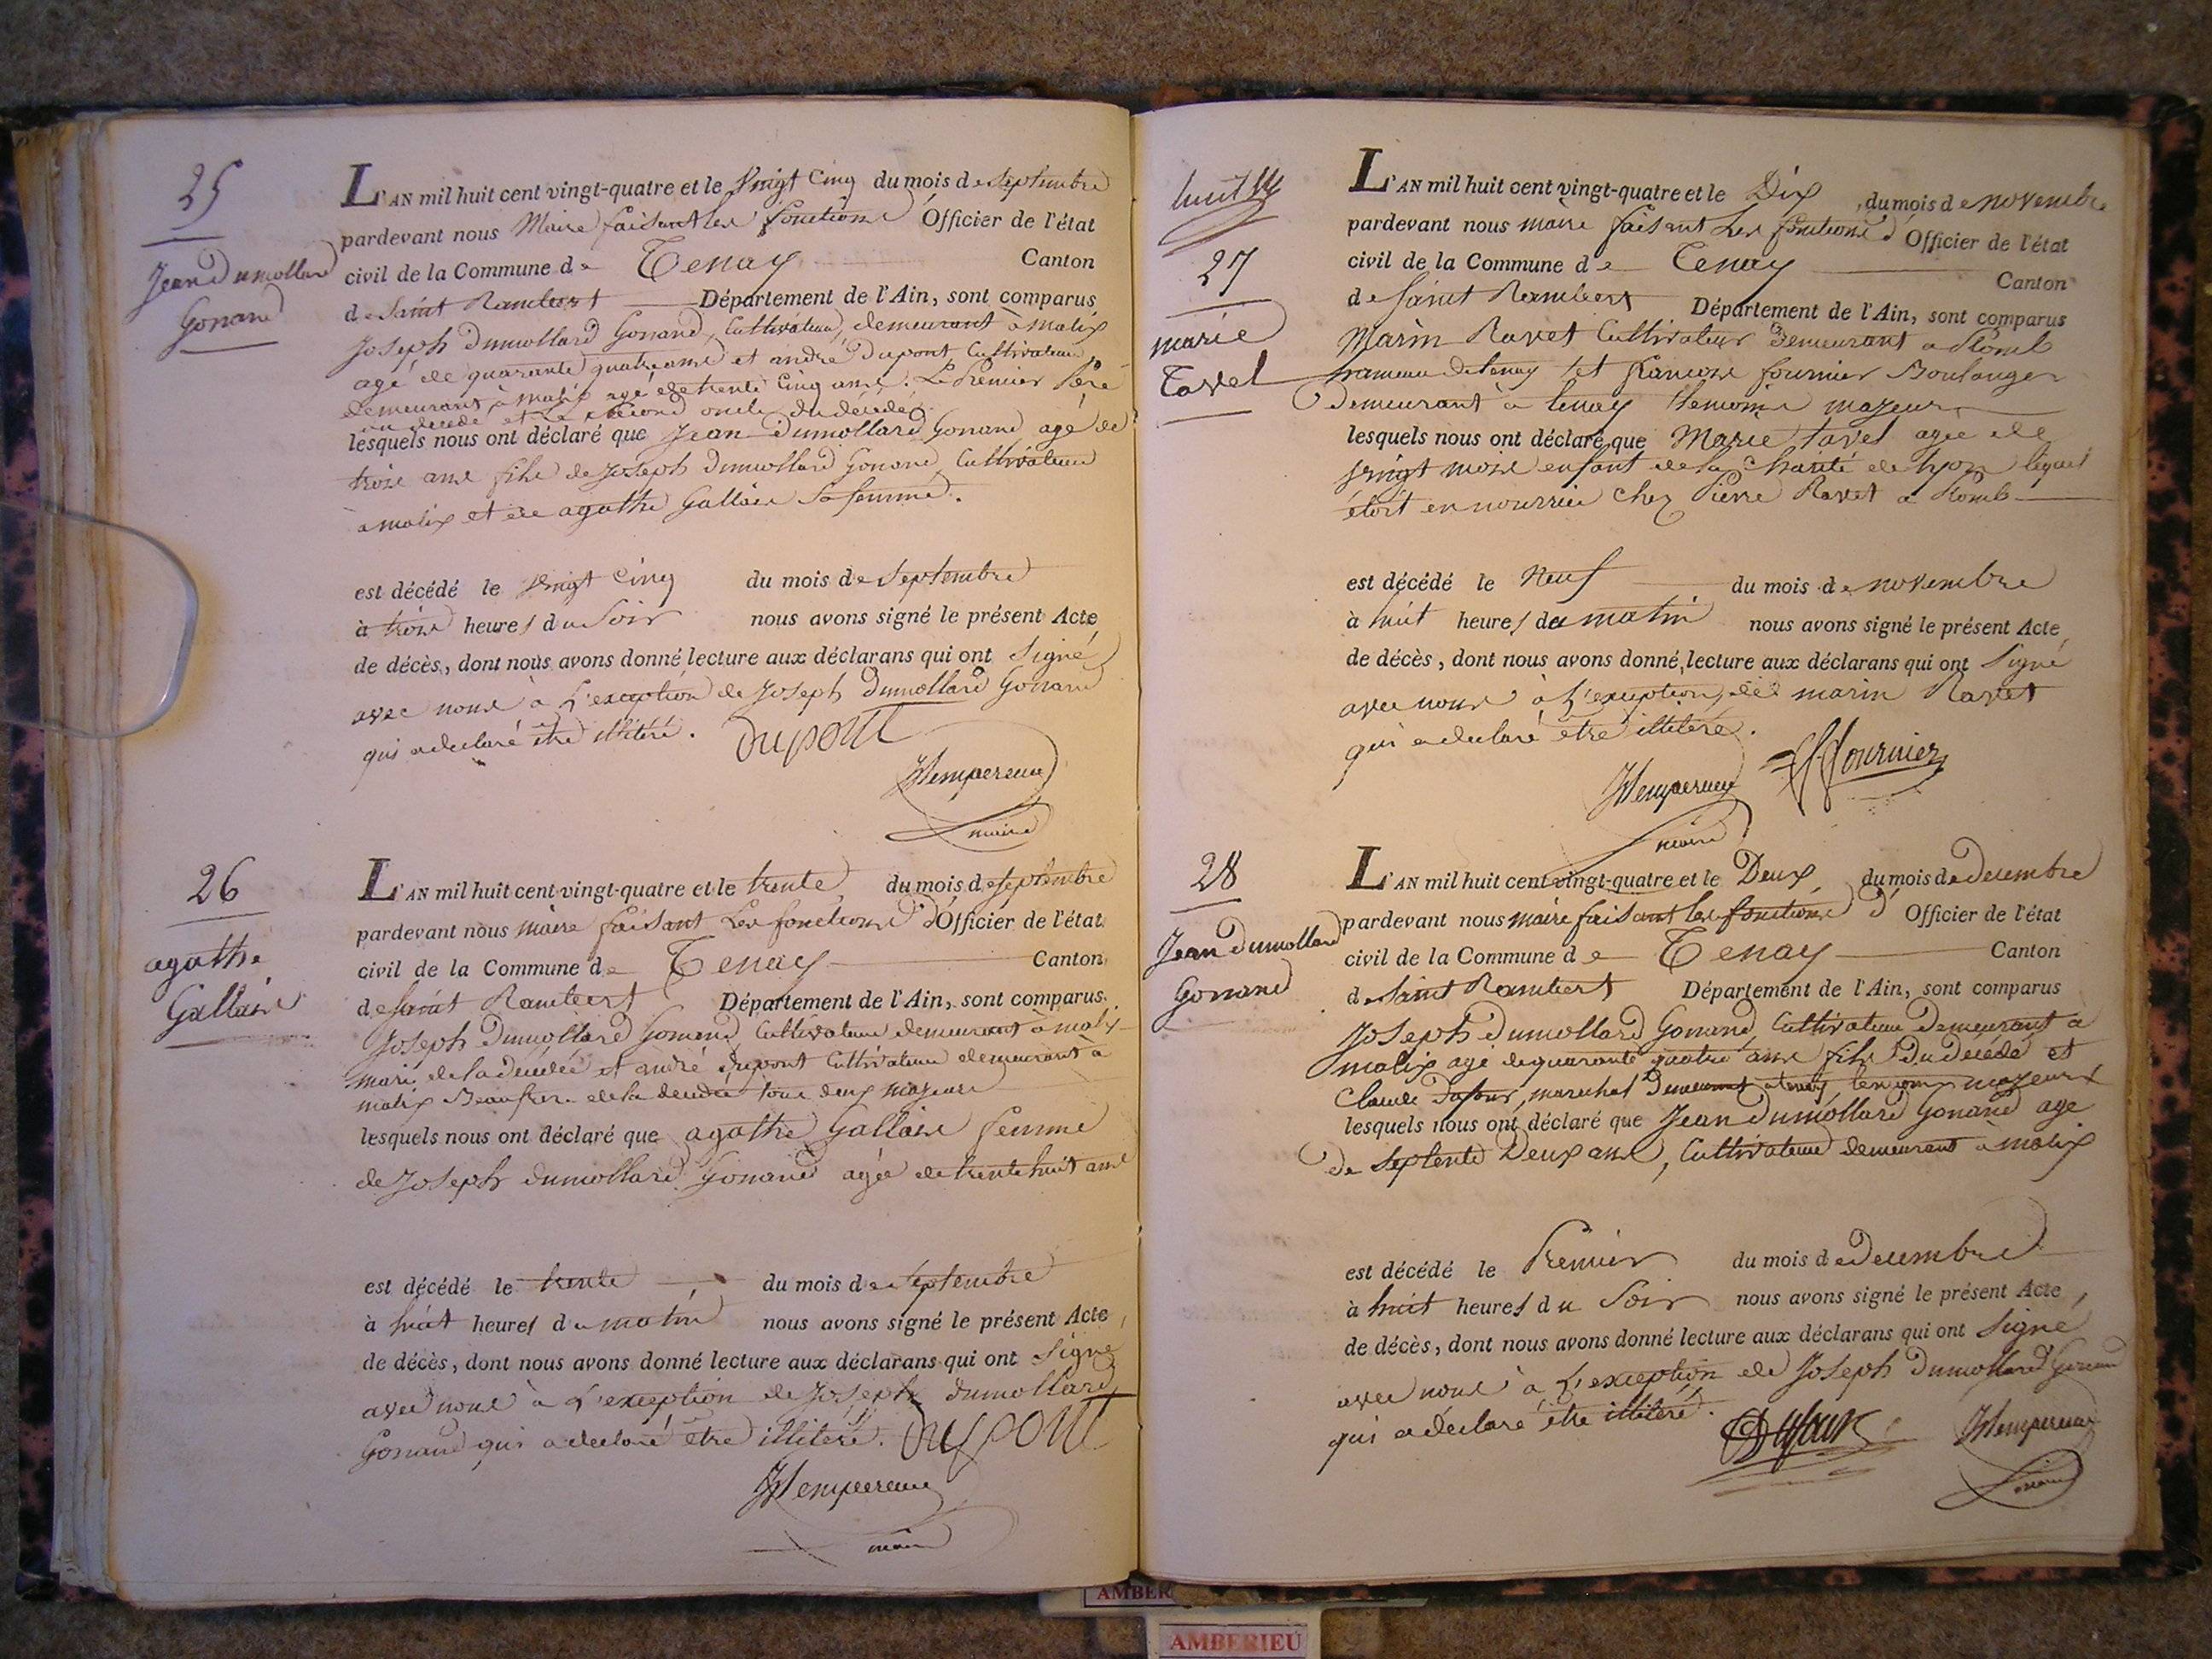 25
Jean Dumollard
Gonand
L'AN mil huit cent vingt-quatre et le vingt cinq du mois de septembre
pardevant nous Maire faisant les fonctions Officier de l'état
civil de la Commune de Tenay Canton
de Saint Rambert Département de l'Ain, sont comparus
Joseph Dumollard Gonand, Cultivateur, demeurant à malix
agé de quarante quatre ans et andré Dupont Cultivateur
demeurant à malix agé de trente Cinq ans. Le Premier Père
du décédé et le second oncle du décédé.
lesquels nous ont déclaré que Jean Dumollard Gonand agé de
trois ans fils de Joseph Dumollard Gonand Cultivateur
a malix et de agathe Gallain Sa femme.
est décédé le vingt Cinq du mois de Septembre
à trois heures du Soir nous avons signé le présent Acte
de décès, dont nous avons donné lecture aux déclarans qui ont Signé
avec nous à L'exception de Joseph Dumollard Gonand
qui a declaré être illitéré. Dupont
maire
26
agathe
Gallain
L'AN mil huit cent vingt-quatre et le trente du mois de septembre
pardevant nous maire faisant Les fonctions d'Officier de l'état
civil de la Commune de Tenay Canton
de Saint Rambert Département de l'Ain, sont comparus
Joseph Dumollard Gonand Cultivateur demeurant à malix
mari de la décédée et andré dupont Cultivateur demeurant à
malix Beaufrere de la décédée tous deux majeurs
lesquels nous ont déclaré que agathe Gallain femme
de Joseph dumollard Gonand agée de trente huit ans
est décédé le trente du mois de Septembre
à huit heures du matin nous avons signé le présent Acte
de décès, dont nous avons donné lecture aux déclarans qui ont Signé
avec nous à L'exception de Joseph dumollard
Gonand qui a declaré être illitéré. Dupont
maire
27
marie
Tavel
L'AN mil huit cent vingt-quatre et le Dix du mois de novembre
pardevant nous maire faisant Les fonctions d'Officier de l'état
civil de la Commune de Tenay Canton
de Saint Rambert Département de l'Ain, sont comparus
Marin Ravet Cultivateur Demeurant a Plomb
hameau de tenay et francois fournier Boulanger
Demeurant à tenay temoins majeurs
lesquels nous ont déclaré que Marie tavel agée de
vingt mois enfant de la Charité de lyon lequel
étoit en nourrice Chez Pierre Ravet a Plomb
est décédé le Neuf du mois de novembre
à huit heures du matin nous avons signé le présent Acte
de décès, dont nous avons donné lecture aux déclarans qui ont Signé
avec nous à L'exception de marin Ravet
qui a declaré être illitéré.
fournier
maire
28
Jean Dumollard
Gonand
L'AN mil huit cent vingt-quatre et le Deux du mois de decembre
pardevant nous maire faisant les fonctions d' Officier de l'état
civil de la Commune de Tenay Canton
de Saint Rambert Département de l'Ain, sont comparus
Joseph dumollard Gonand, Cultivateur Demeurant a
malix agé de quarante quatre ans fils Du décédé et
Claude Dufour, marechal Demeurant a tenay, temoins majeurs
lesquels nous ont déclaré que Jean Dumollard Gonand age
De septente Deux ans, Cultivateur demeurant à malix
est décédé le Premier du mois de Decembre
à huit heures du Soir nous avons signé le présent Acte
de décès, dont nous avons donné lecture aux déclarans qui ont Signé
avec nous à L'exception de Joseph Dumollard Gonand
qui a déclaré être illitéré.
Dufour
maire
AMBER
AMBERIEU